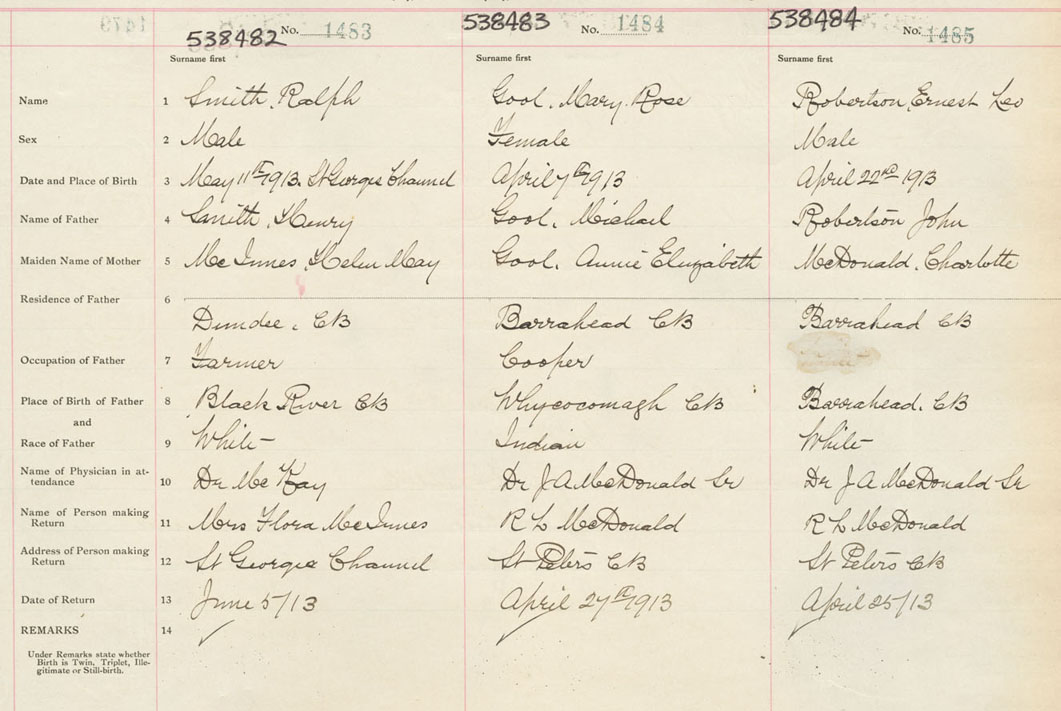 538482 No. 1483 538483 No. 1484 538484 No. 1485
Surname first Surname first Surname first
Name 1 Smith, Ralph Gool, Mary Rose Robertson, Ernest Leo
Sex 2 Male Female Male
Date and Place of Birth 3 May 11th 1913. St Georges Channel April 7th 1913 April 22nd 1913
Name of Father 4 Smith, Henry Gool, Michael Robertson John
Maiden Name of Mother 5 McInnes, Helen May Gool, Annie Elizabeth McDonald, Charlotte
Residence of Father 6
Dundee, CB Barrahead CB Barrahead CB
Occupation of Father 7 Farmer Cooper
Place of Birth of Father 8 Black River CB Whycocomagh CB Barrahead, CB
and
Race of Father 9 White Indian White
Name of Physician in at-
tendance 10 Dr McKay Dr J A McDonald Sr Dr J A McDonald Sr
Name of Person making
Return 11 Mrs Flora McInnes R L McDonald R L McDonald
Address of Person making
Return 12 St Georges Channel St Peters CB St Peters CB
Date of Return 13 June 5/13 April 27th 1913 April 25/13
REMARKS 14
Under Remarks state whether
Birth is Twin, Triplet, Ille-
gitimate or Still-birth.